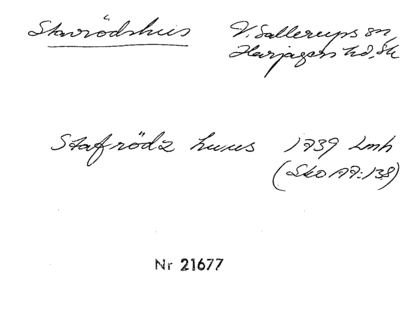 Stavrödshus V. Sallerups sn,
Harjagers hd, Sk
Stafrödz huus 1739 Lmh
(Sko 17:138)
Nr 21677